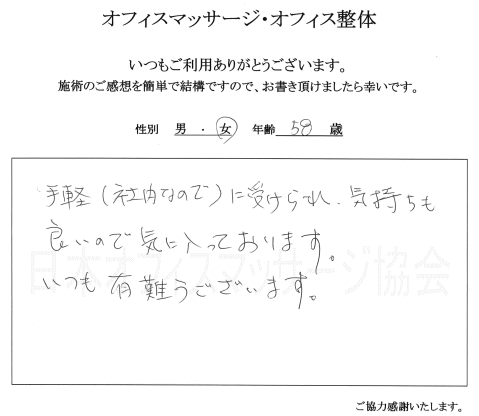 オフィスマッサージ・オフィス整体
いつもご利用ありがとうございます。
施術のご感想を簡単で結構ですので、お書き頂けましたら幸いです。
性別 男 ・ 女 年齢 58 歳
手軽（社内なので）に受けられ、気持ちも
良いので気に入っております。
日本オフィスマッサージ協会
いつも有難うございます。
ご協力感謝いたします。